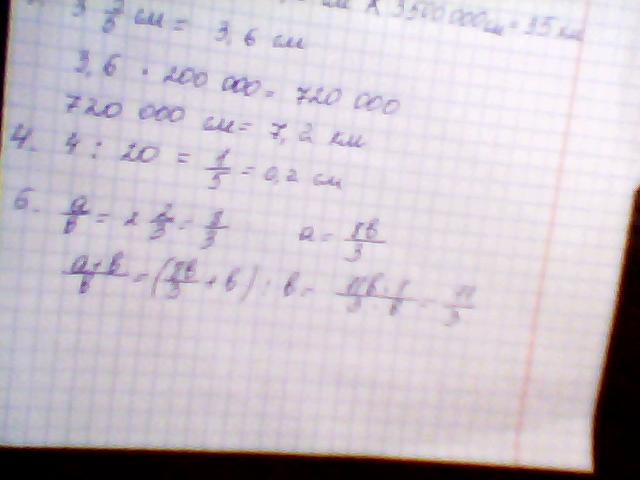 3 3/5 см = 3,6 см
см 3500 000 см = 35 км
3,6 · 200 000 = 720 000
720 000 см = 7,2 км
4. 4 : 20 = 1/5 = 0,2 см
6. a/b = 2 2/3 = 8/3 a = 8b/3
(a+b)/b = (8b/3 + b) : b = (11b · 1)/(3 · b) = 11/3